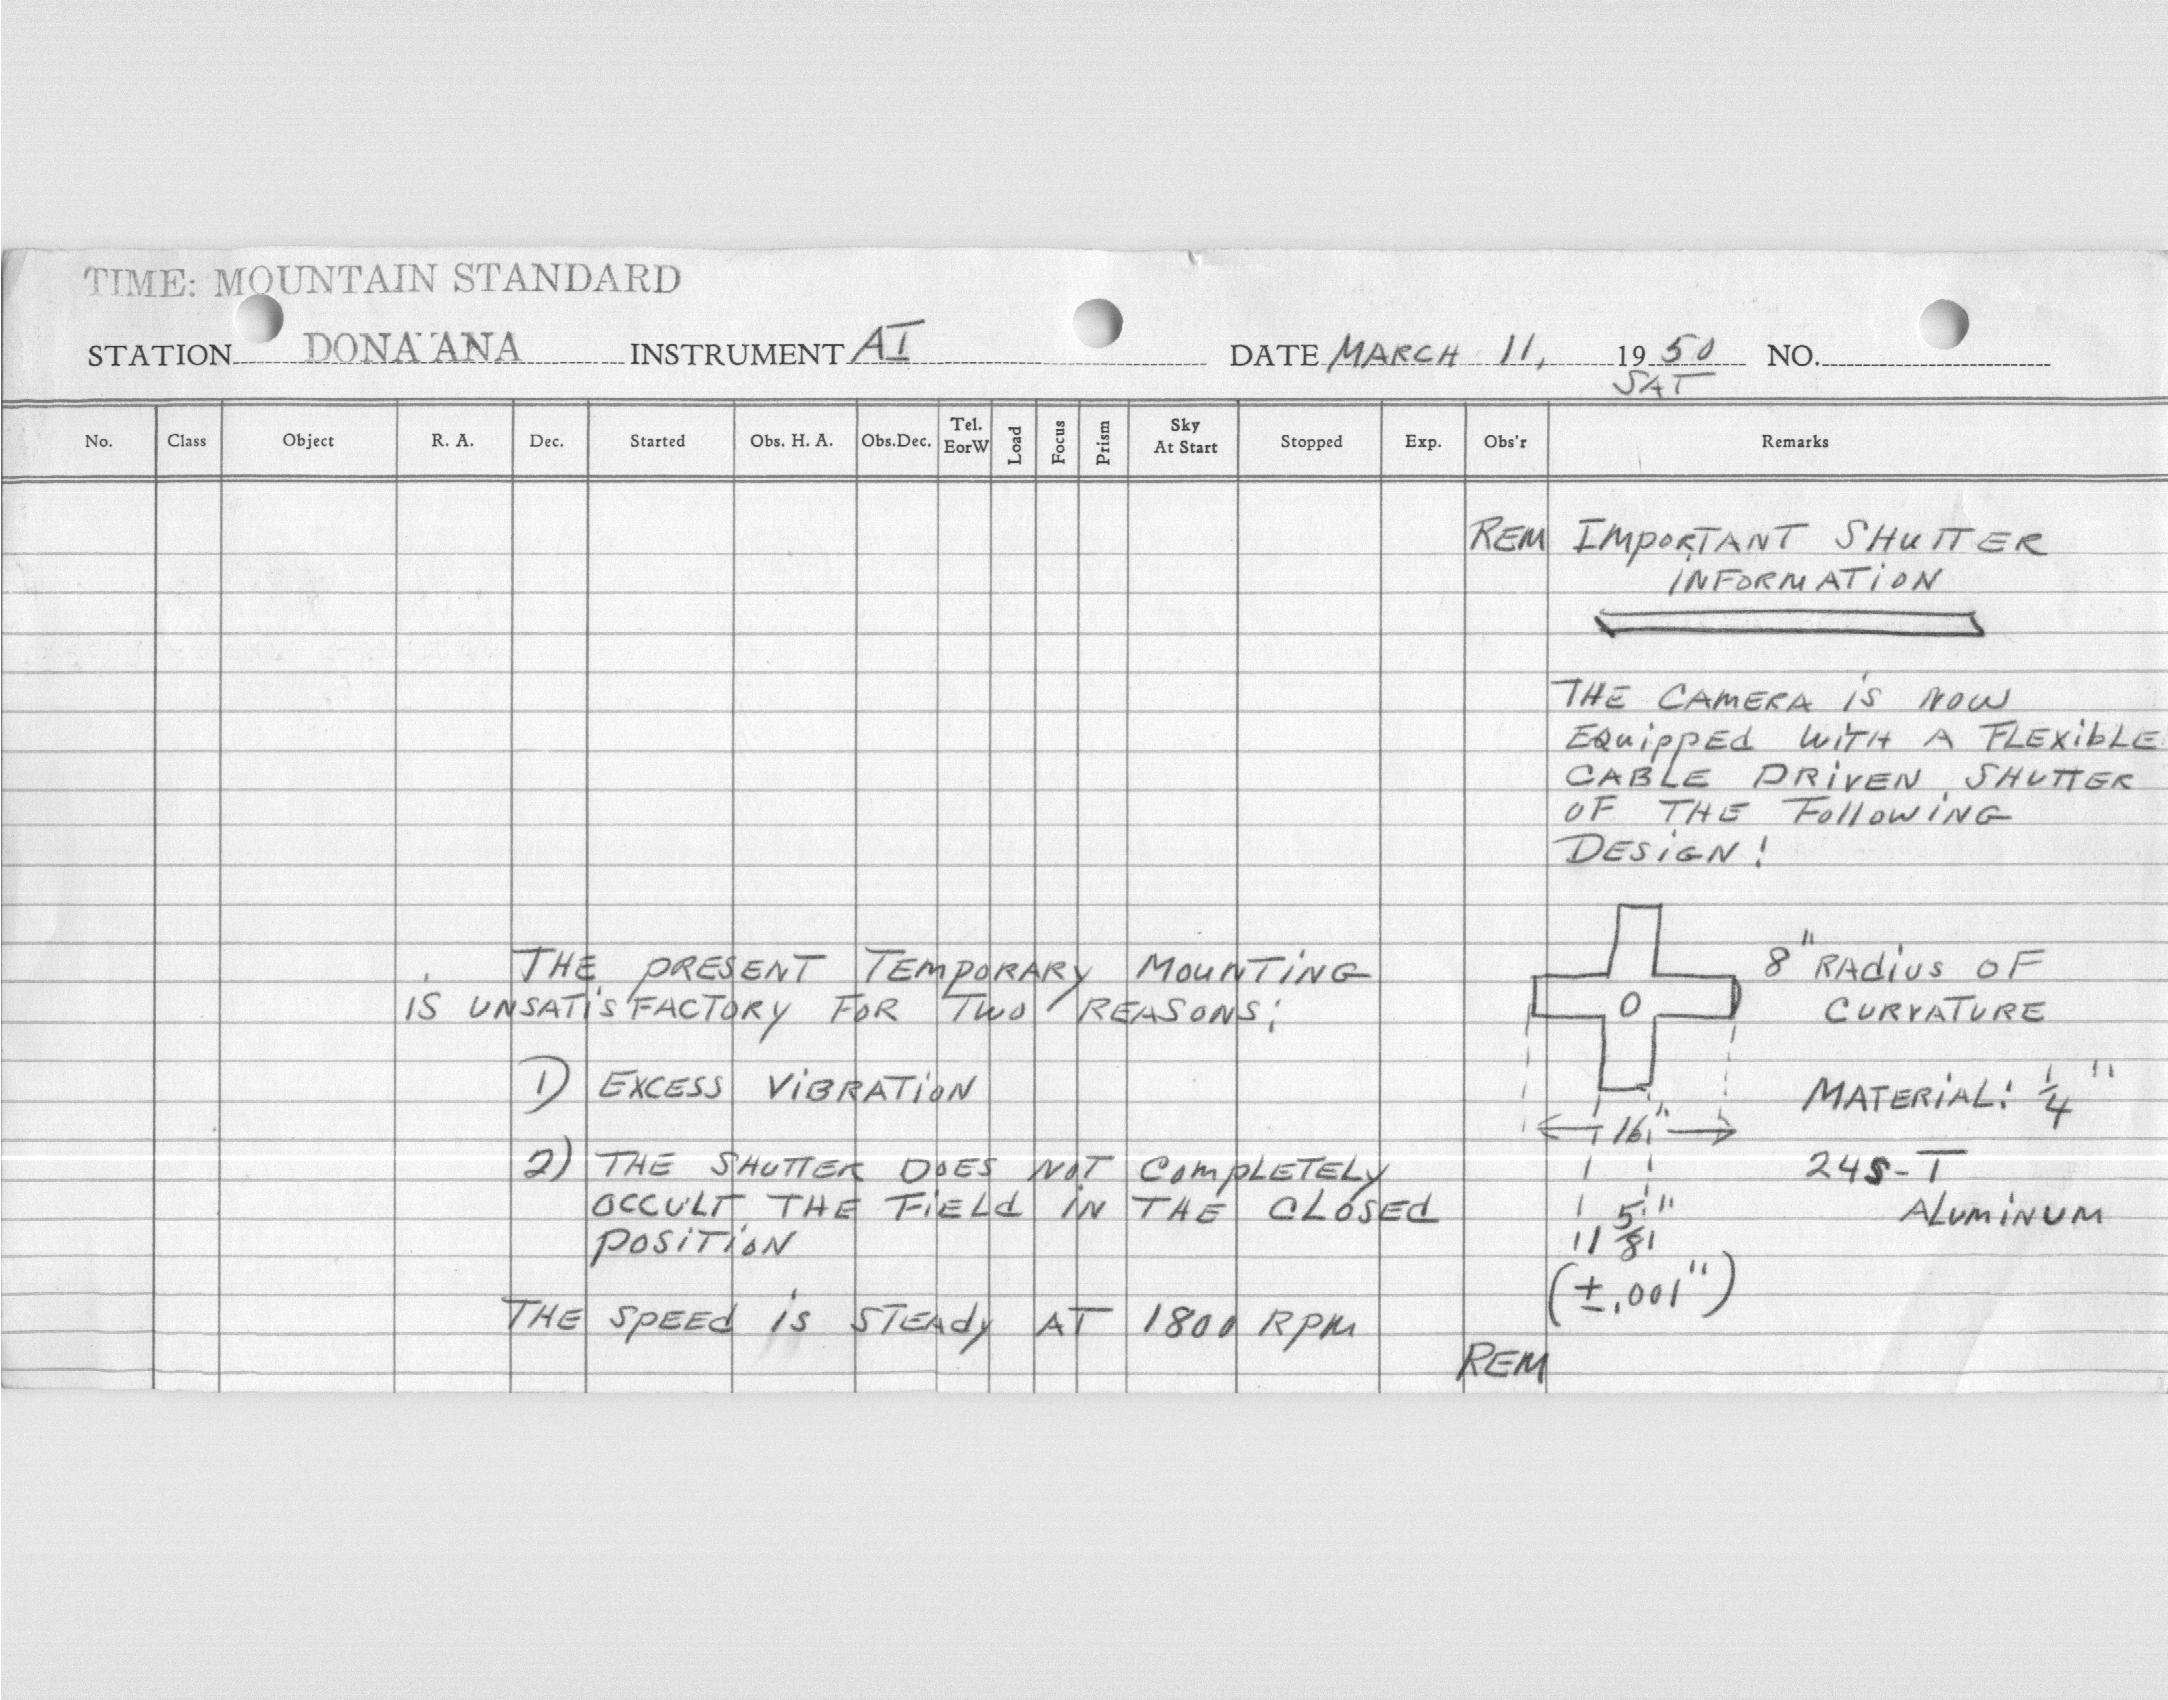 TIME: MOUNTAIN STANDARD
STATION DONA ANA INSTRUMENT AI DATE MARCH 11, 1950 NO.
SAT
No. Class Object R. A. Dec. Started Obs. H. A. Obs.Dec. Tel. EorW Load Focus Prism Sky At Start Stopped Exp. Obs'r Remarks
REM IMPORTANT SHUTTER
INFORMATION
THE CAMERA iS NOW
EQuippEd WiTH A FLEXibLE
CABLE DRiVEN SHUTTER
OF THE FollowiNG
DESiGN!
8" RAdius OF
CURVATURE
MATERiAL: 1/4"
24S-T
ALUMiNUM
16"
1 5/8"
(±.001")
THE PRESENT TEMPORARY MOUNTiNG
iS UNSATiSFACTORY FOR TWO REASONS:
1) EXCESS ViBRATiON
2) THE SHUTTER DOES NOT COMPLETELY
OCCULT THE FiELd iN THE CLOSEd
POSiTiON
THE SPEEd iS STEAdy AT 1800 RPM
REM